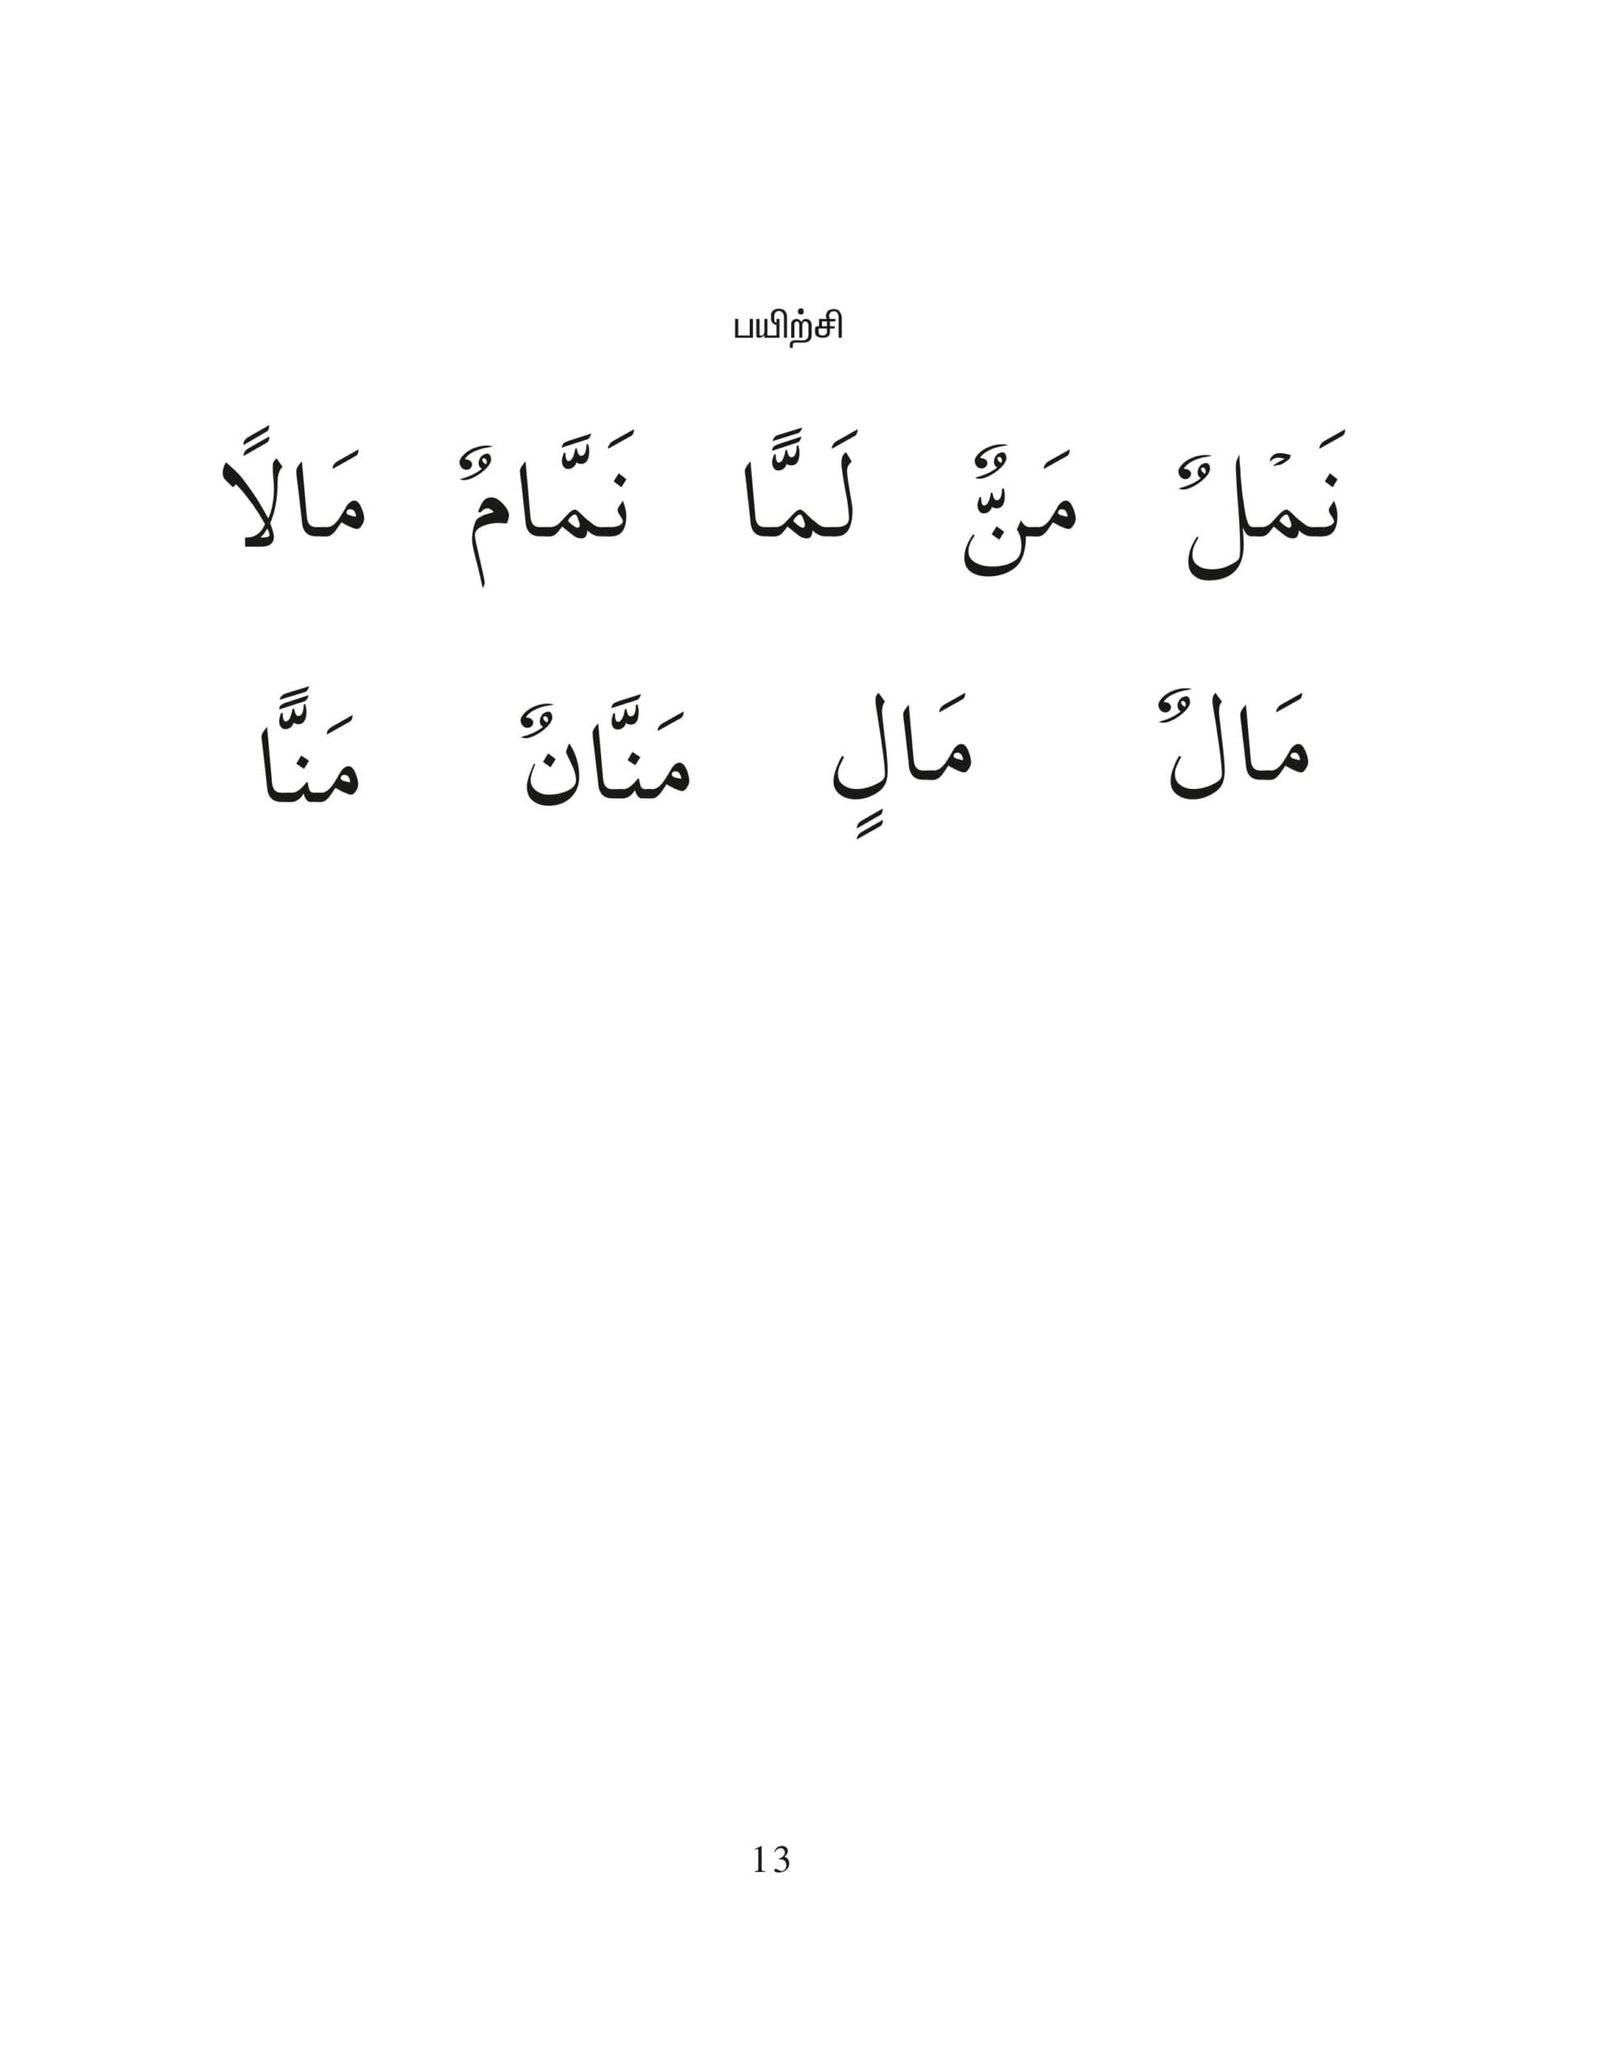 பயிற்சி
نَمْلٌ مَنٌّ لَمًّا نَمَّامٌ مَالًا
مَالٌ مَالٍ مَنَّانٌ مَنًّا
13